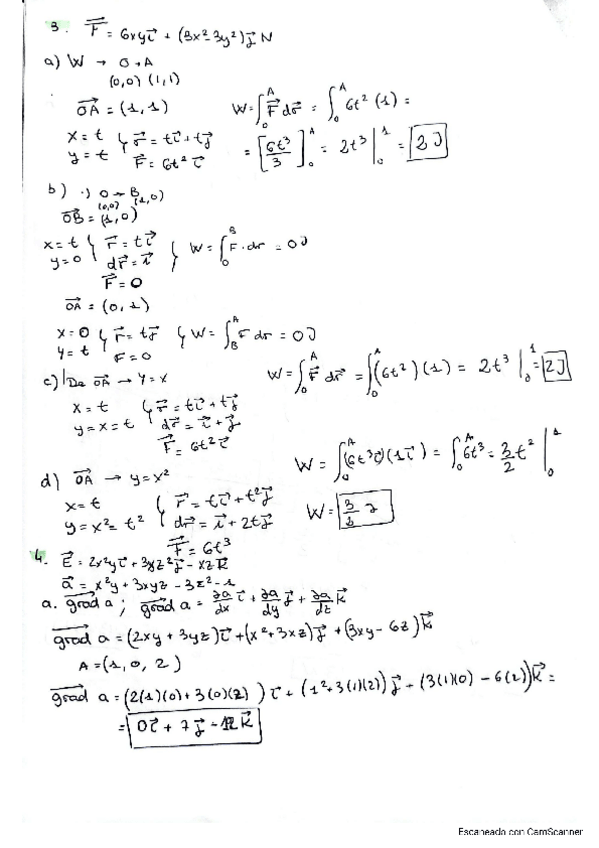 3. F = 6xyi + (3x²-3y²)j N
a) W → O→A
(0,0) (1,1)
OA = (1,1) W = ∫₀ᴬ F dr = ∫₀ᴬ 6t² (1) =
x = t
y = t } r = ti + tj
F = 6t² i = [6t³/3]₀ᴬ = 2t³ |₀¹ = 2J
b) ·) O→B
(0,0) (1,0)
OB = (1,0)
x = t
y = 0 } r = ti
dr = i } W = ∫₀ᴮ F · dr = 0J
F = 0
OA = (0,1)
x = 0
y = t } r = tj
F = 0 } W = ∫_Bᴬ F dr = 0J
c) De OA → y = x W = ∫₀ᴬ F dr = ∫₀ᴬ (6t²)(1) = 2t³ |₀¹ = 2J
x = t
y = x = t } r = ti + tj
dr = i + j
F = 6t² i
d) OA → y = x² W = ∫₀ᴬ (6t³i)(1i) = ∫₀ᴬ 6t³ = 3/2 t² |₀¹
x = t
y = x² = t² } r = ti + t²j
dr = i + 2tj W =
F = 6t³
4. E = 2x²yi + 3xz²j - xzk
a = x²y + 3xyz - 3z² - 1
a. grad a; grad a = ∂a/dx i + ∂a/dy j + ∂a/dz k
grad a = (2xy + 3yz)i + (x² + 3xz)j + (3xy - 6z)k
A = (1, 0, 2)
grad a = (2(1)(0) + 3(0)(2))i + (1² + 3(1)(2))j + (3(1)(0) - 6(2))k =
= 0i + 7j - 12k
Escaneado con CamScanner